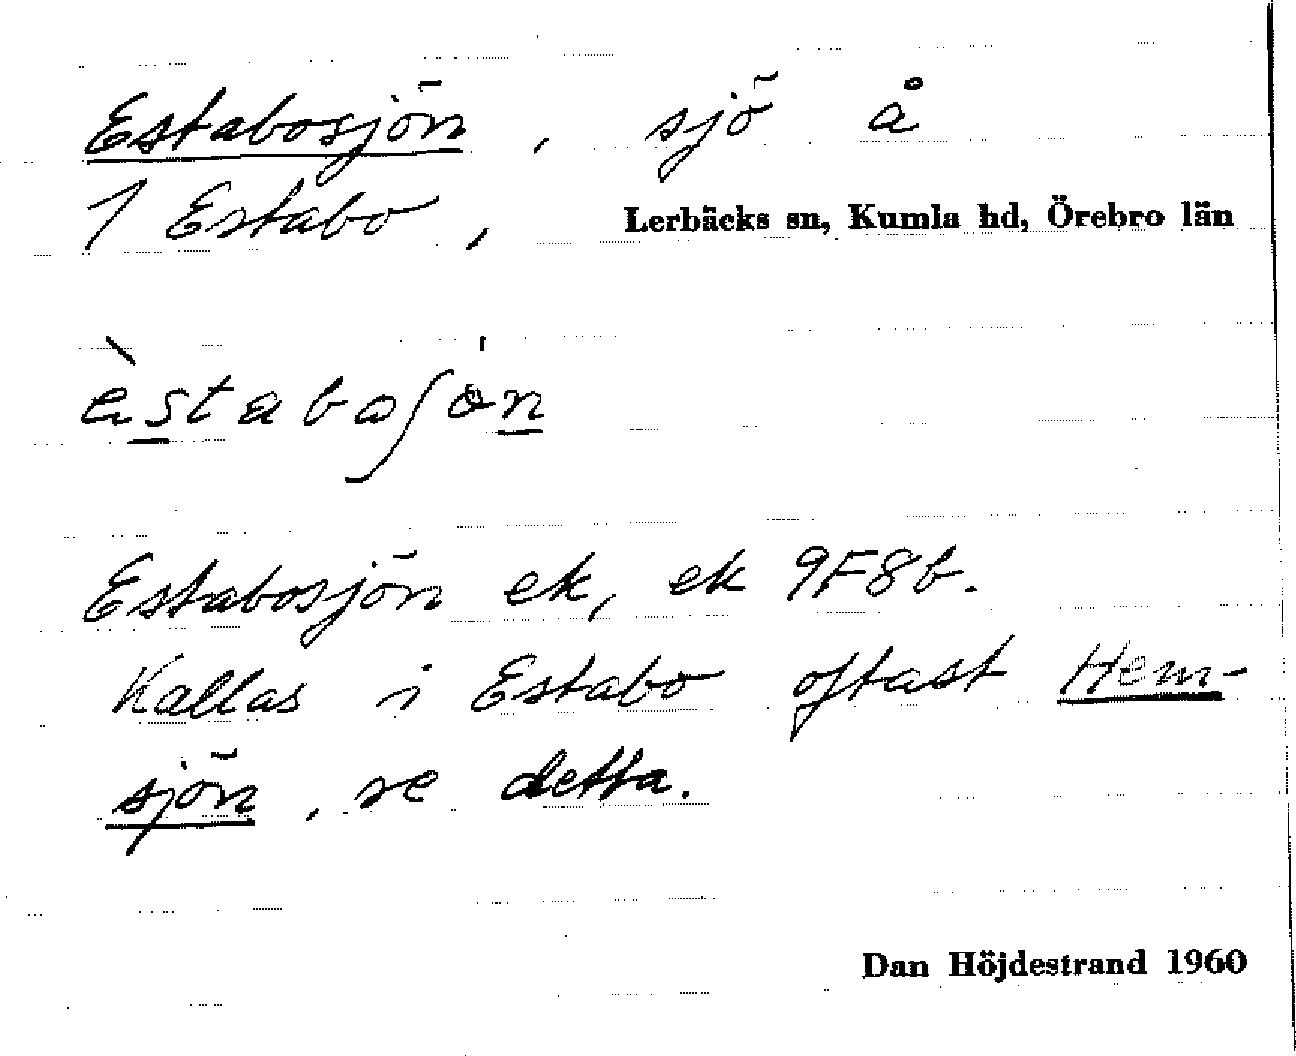 Estabosjön, sjö å
1 Estabo, Lerbäcks sn, Kumla hd, Örebro län
èstaboʃön
Estabosjön ek, ek 9F8b.
Kallas i Estabo oftast Hem-
sjön, se detta.
Dan Höjdestrand 1960